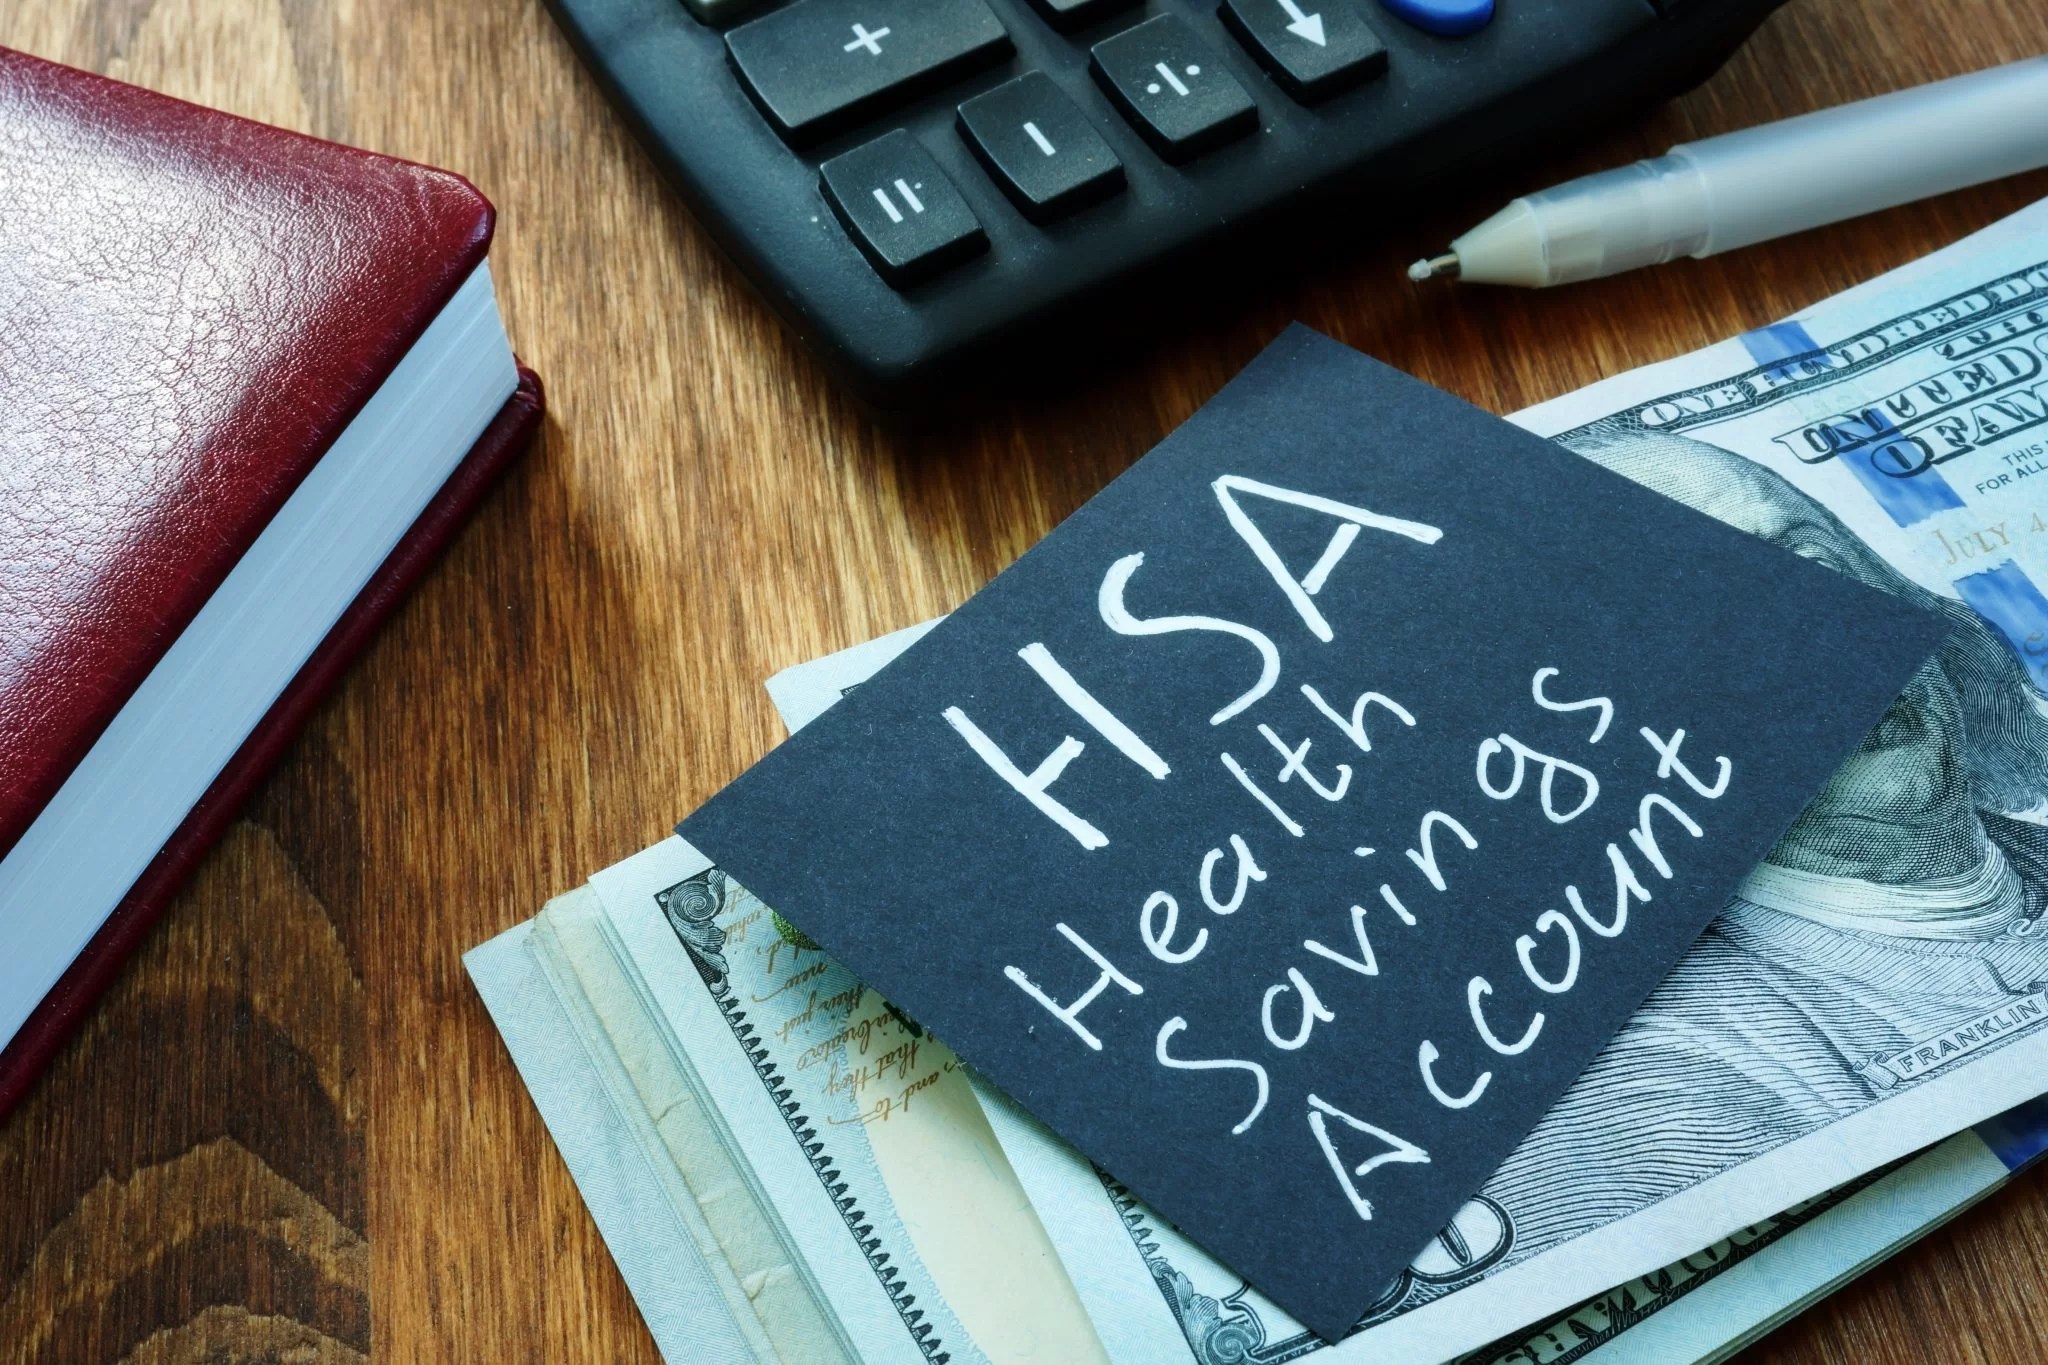 HSA
Health
Savings
Account
+
-
÷
=
ONE HUNDRED
THIS
FOR ALL
JULY 4
FRANKLIN